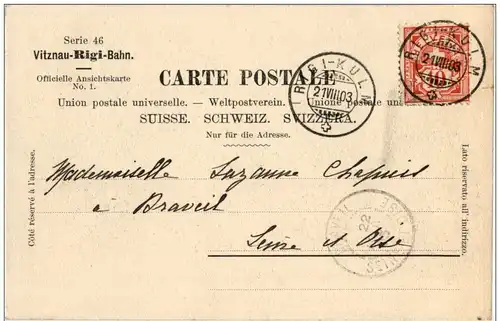 Serie 46
Vitznau-Rigi-Bahn.
Officielle Ansichtskarte
No. 1.
CARTE POSTALE
Union postale universelle. — Weltpostverein. — Unione postale un
SUISSE. SCHWEIZ. SVIZZERA.
Nur für die Adresse.
RIGI-KULM
21 VIII 03
RIGI-KULM
21 VIII 03
Côté réservé à l'adresse.
Lato riservato all' indirizzo.
Mademoiselle Suzanne Chapuis
à Draveil
Seine et Oise
22